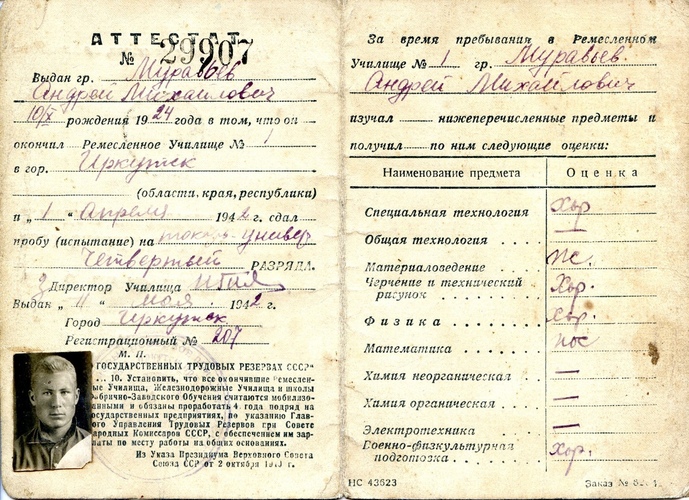 АТТЕСТАТ
№ 29907
Выдан гр. Муравьев
Андрей Михайлович
10/X рождения 1924 года в том, что он
окончил Ремесленное Училище № 1
в гор. Иркутск
(области, края, республики)
и „1“ Апреля 1942 г. сдал
пробу (испытание) на токарь-универ
Четвертый РАЗРЯДА.
Директор Училища
Выдан „11“ мая 1942 г.
Город Иркутск
Регистрационный № 207
М. П.
ГОСУДАРСТВЕННЫХ ТРУДОВЫХ РЕЗЕРВАХ СССР“
... 10. Установить, что все окончившие Ремеслен-
ные Училища, Железнодорожные Училища и школы
Фабрично-Заводского Обучения считаются мобилизо-
ванными и обязаны проработать 4 года подряд на
государственных предприятиях, по указанию Глав-
ного Управления Трудовых Резервов при Совете
Народных Комиссаров СССР, с обеспечением им зар-
платы по месту работы на общих основаниях.
Из Указа Президиума Верховного Совета
Союза ССР от 2 октября 1940 г.
За время пребывания в Ремесленном
Училище № 1 гр. Муравьев.
Андрей Михайлович
изучал нижеперечисленные предметы и
получил по ним следующие оценки:
Наименование предмета Оценка
Специальная технология Хор
Общая технология —
Материаловедение пс.
Черчение и технический
рисунок Хор.
Физика Хор.
Математика пос
Химия неорганическая —
Химия органическая —
Электротехника —
Военно-физкультурная
подготовка Хор.
НС 43623 Заказ №